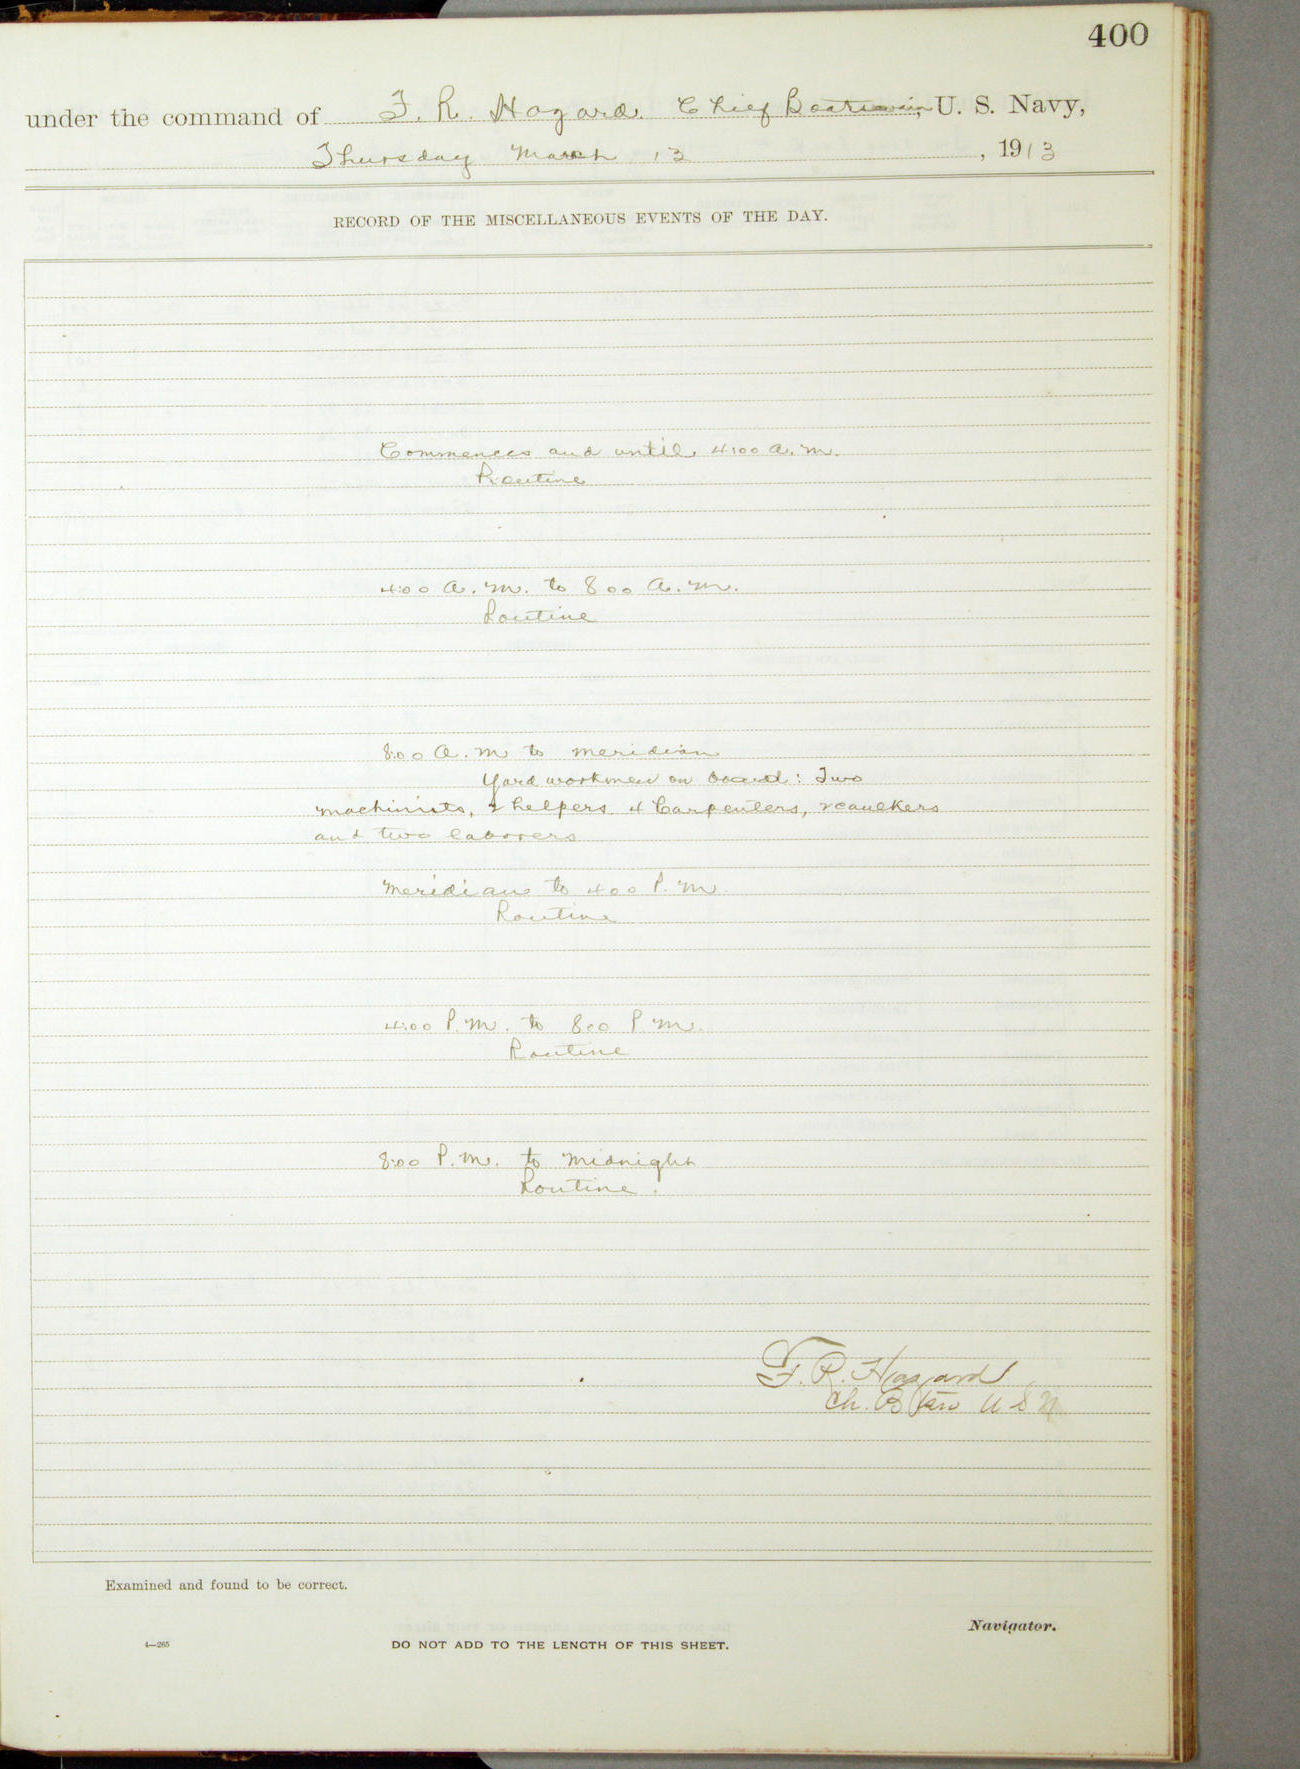 400
under the command of F. R. Hazard. Chief Boatswain, U. S. Navy,
Thursday March 13, 1913
RECORD OF THE MISCELLANEOUS EVENTS OF THE DAY.
Commences and until 4:00 a.m.
Routine
4:00 a.m. to 8 00 a.m.
Routine
8:00 a.m to meridian
Yard workmen on board: Two
machinists, 2 helpers 4 Carpenters, 2 caulkers
and two laborers
Meridian to 4 00 P.M.
Routine
4:00 P.M. to 8 00 P M.
Routine
8:00 P.M. to Midnight
Routine.
F. R. Hazard
Ch. Btsn U S N
Examined and found to be correct.
Navigator.
4—265
DO NOT ADD TO THE LENGTH OF THIS SHEET.